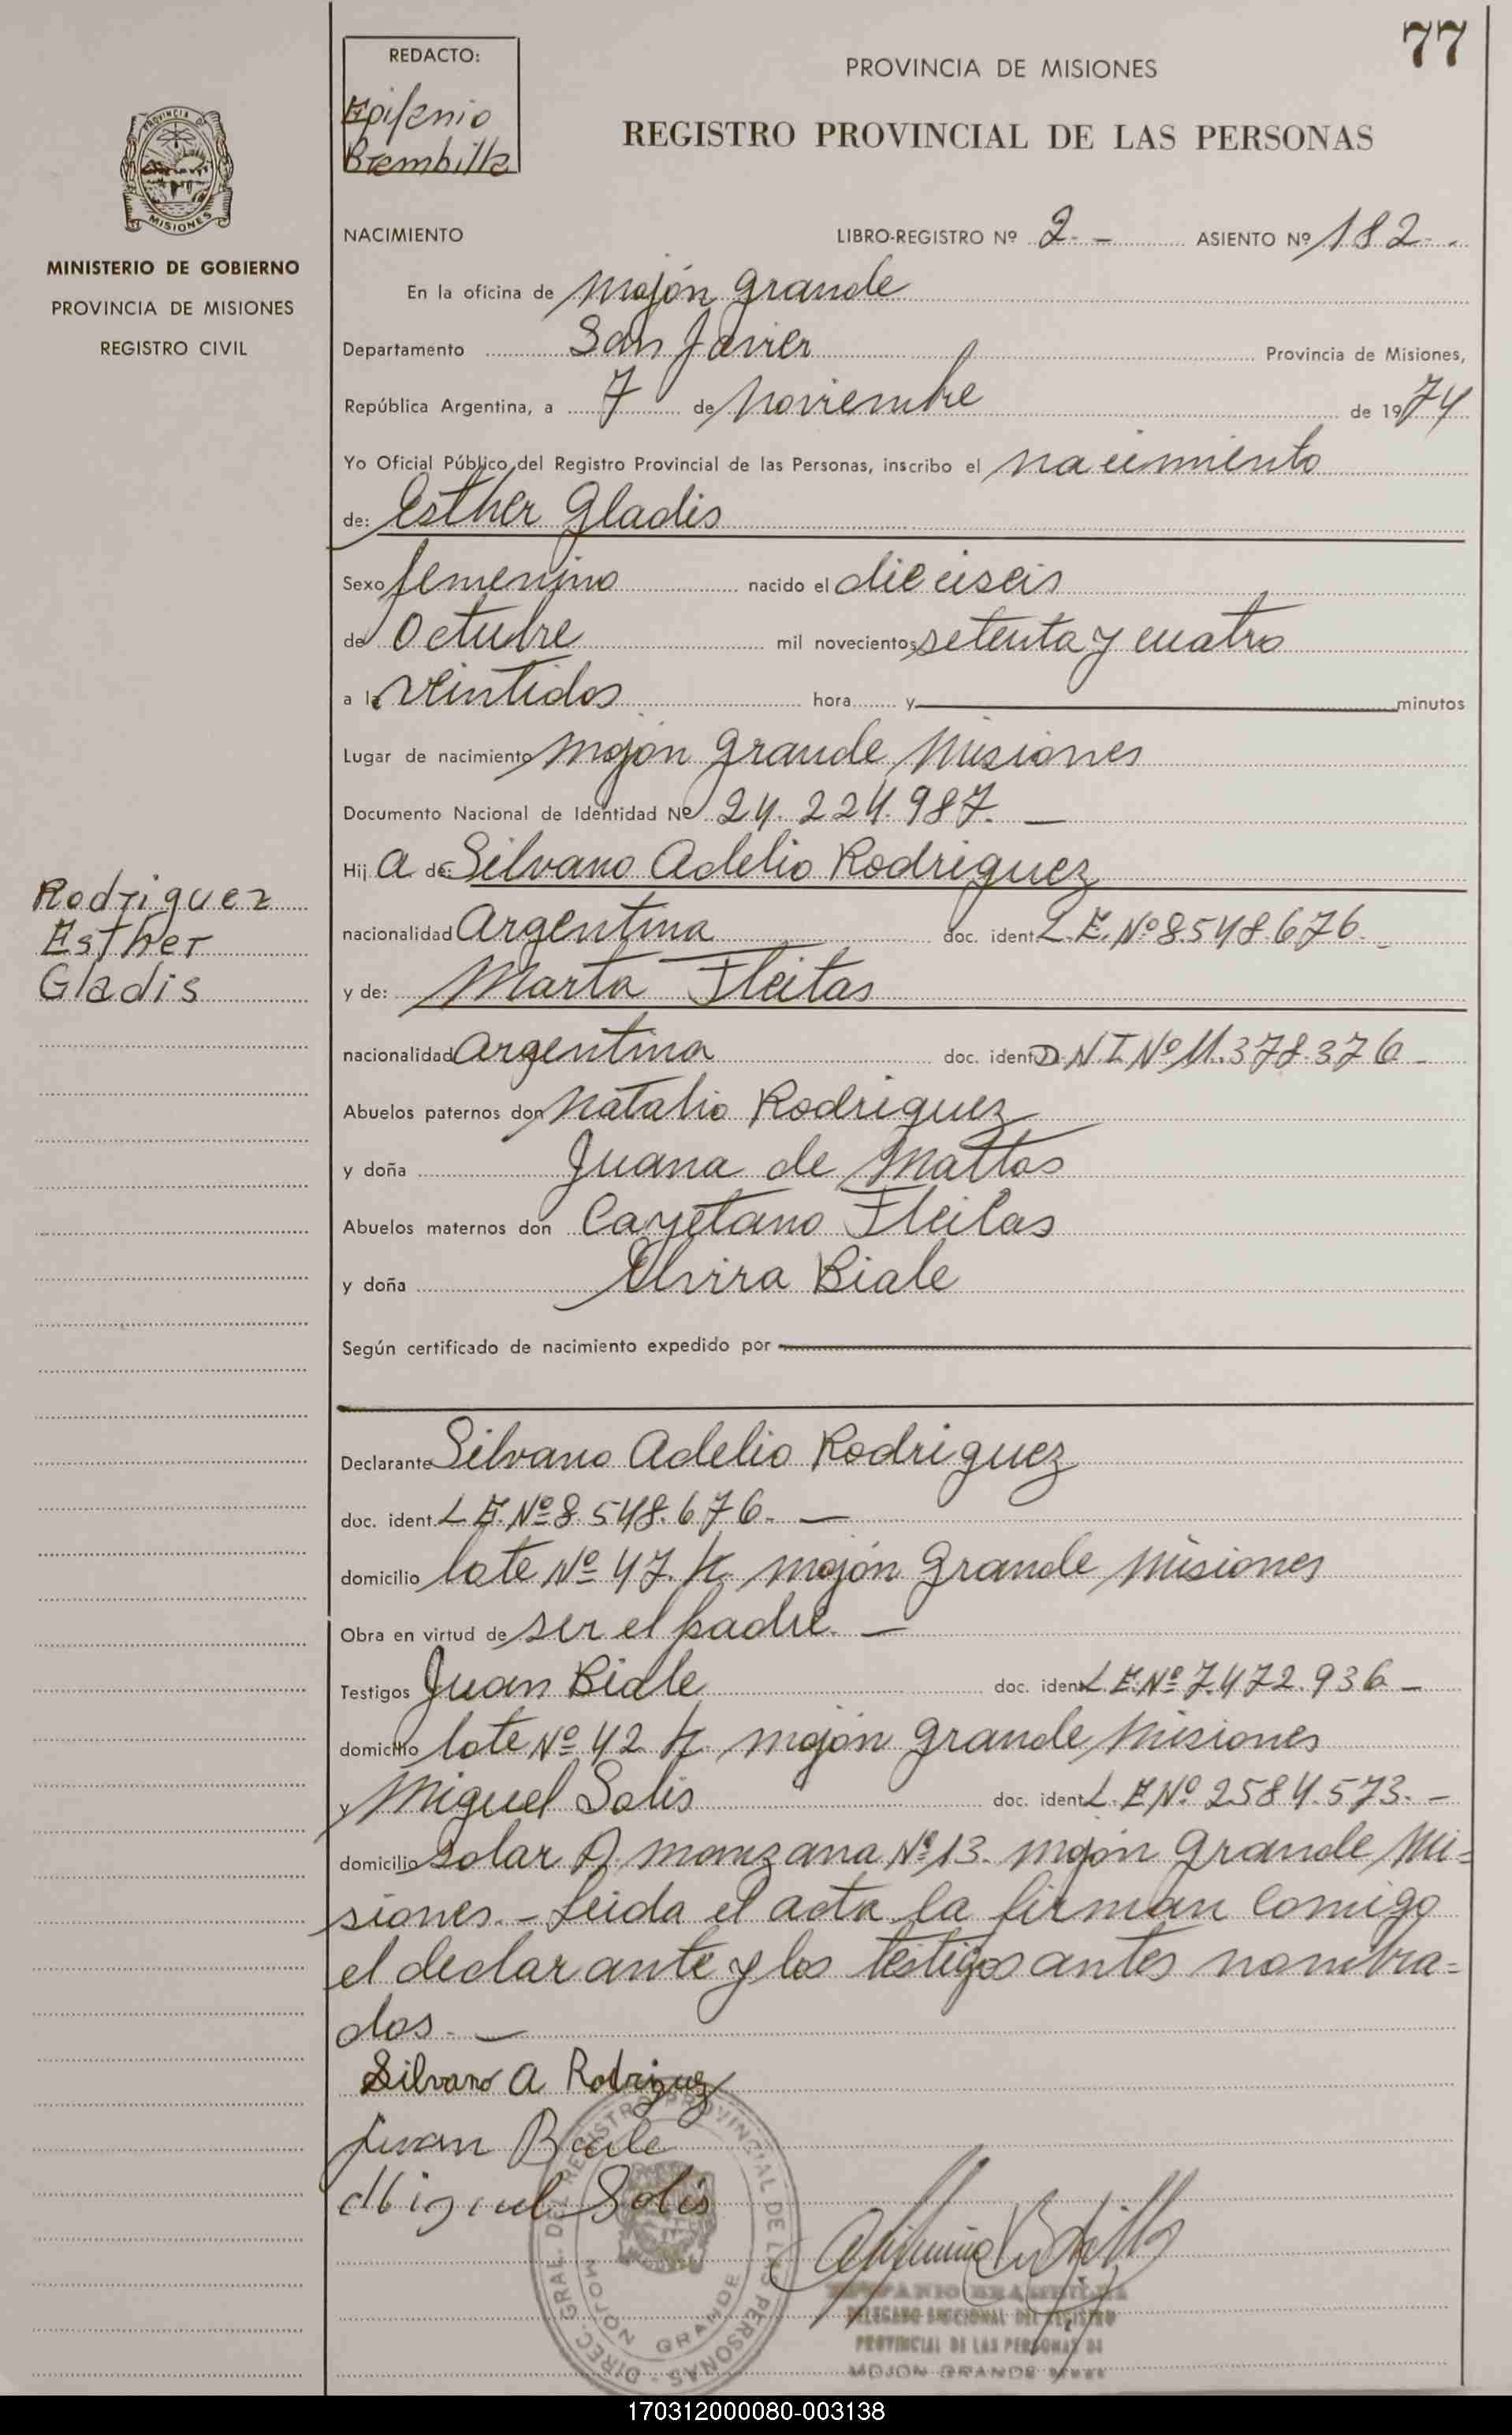 77
REDACTO:
Epifanio
Brambilla
PROVINCIA DE MISIONES
REGISTRO PROVINCIAL DE LAS PERSONAS
PROVINCIA DE
MISIONES
MINISTERIO DE GOBIERNO
PROVINCIA DE MISIONES
REGISTRO CIVIL
NACIMIENTO
LIBRO-REGISTRO Nº 2.- ASIENTO Nº 182-.
En la oficina de Mojón Grande
Departamento San Javier Provincia de Misiones,
República Argentina, a 7 de Noviembre de 1974
Yo Oficial Público del Registro Provincial de las Personas, inscribo el nacimiento
de: Esther Gladis
Sexo femenino nacido el dieciseis
de Octubre mil novecientos setenta y cuatro
a la veintidos hora y minutos
Lugar de nacimiento Mojón Grande Misiones
Documento Nacional de Identidad Nº 24.224.987. —
Hij a de: Silvano Adelio Rodriguez
Rodriguez
Esther
Gladis
nacionalidad Argentina doc. ident L.E. Nº 8.548.676.-
y de: Marta Fleitas
nacionalidad Argentina doc. ident D N I Nº 11.378.376-
Abuelos paternos don Natalio Rodriguez
y doña Juana de Mattos
Abuelos maternos don Cayetano Fleitas
y doña Elvira Biale
Según certificado de nacimiento expedido por
Declarante Silvano Adelio Rodriguez
doc. ident. L E. Nº 8.548.676. —
domicilio lote Nº 47. K Mojón Grande Misiones
Obra en virtud de ser el padre. —
Testigos Juan Biale doc. ident L E. Nº 7.472.936 -
domicilio lote Nº 42 K Mojón Grande Misiones
y Miguel Solis doc. ident L. E Nº 2584.573. -
domicilio Solar manzana Nº 13. Mojón Grande Mi=
siones.- Leida el acta la firman comigo
el declarante y los testigos antes nombra=
dos. —
Silvano A Rodriguez
Juan Biale
Miguel Solis
DIREC. GRAL. DEL REGISTRO PROVINCIAL DE LAS PERSONAS
MOJON GRANDE
EPIFANIO BRAMBILLA
DELEGADO SECCIONAL DEL REGISTRO
PROVINCIAL DE LAS PERSONAS DE
MOJON GRANDE
170312000080-003138